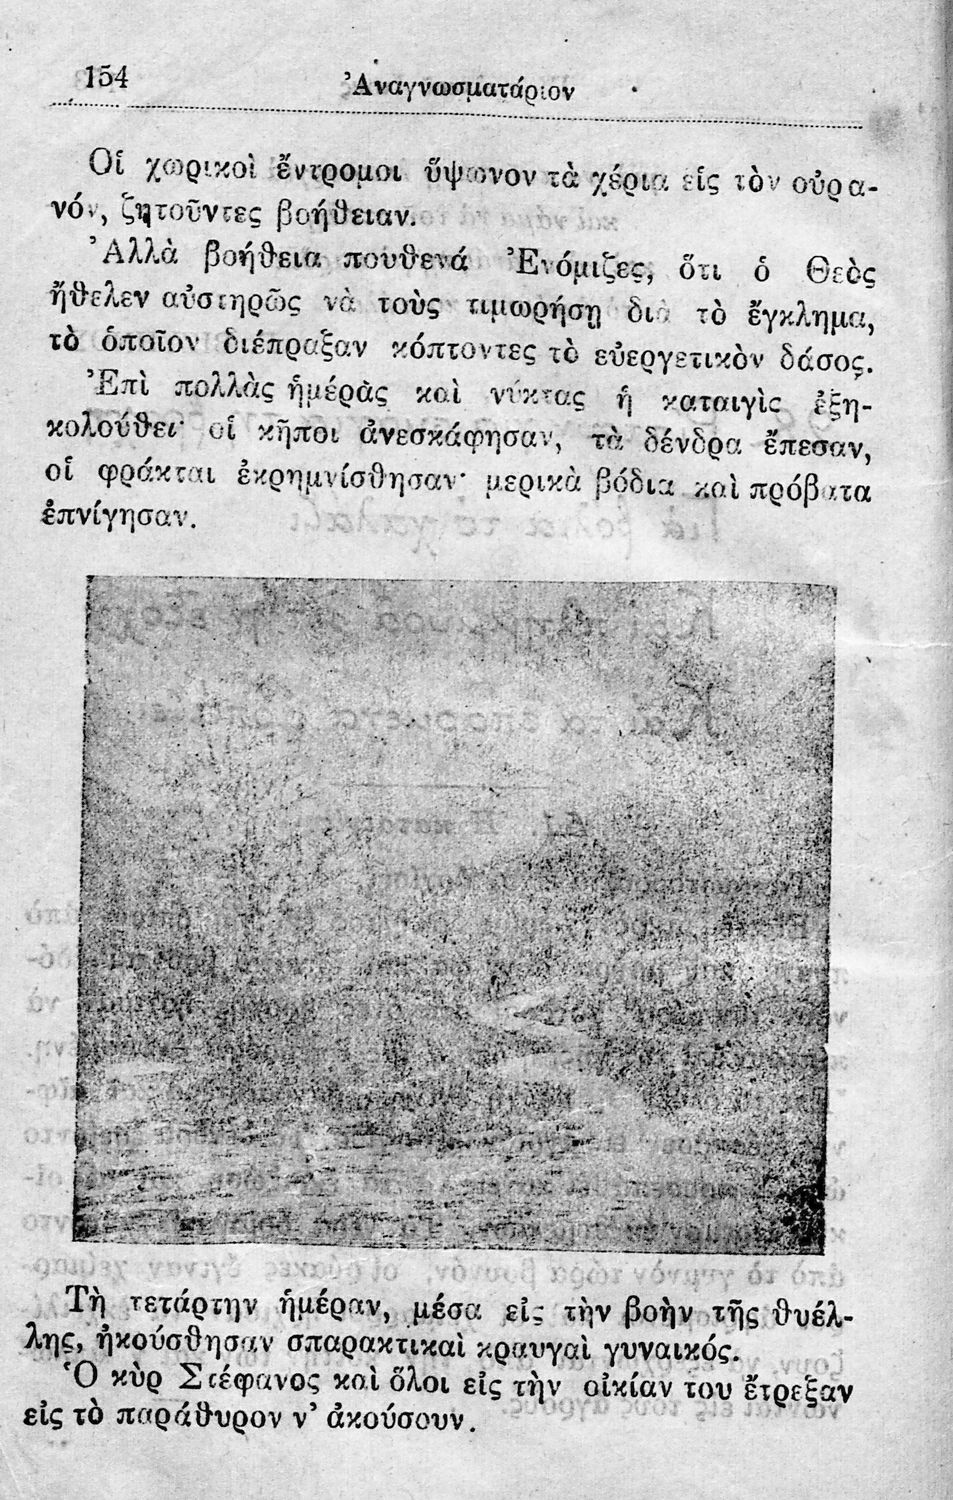 154
Ἀναγνωσματάριον
Οἱ χωρικοὶ ἔντρομοι ὕψωνον τὰ χέρια εἰς τὸν οὐρα-
νόν, ζητοῦντες βοήθειαν.
Ἀλλὰ βοήθεια πουθενά Ἐνόμιζες, ὅτι ὁ Θεὸς
ἤθελεν αὐστηρῶς νὰ τοὺς τιμωρήσῃ διὰ τὸ ἔγκλημα,
τὸ ὁποῖον διέπραξαν κόπτοντες τὸ εὐεργετικὸν δάσος.
Ἐπὶ πολλὰς ἡμέρας καὶ νύκτας ἡ καταιγὶς ἐξη-
κολούθει· οἱ κῆποι ἀνεσκάφησαν, τὰ δένδρα ἔπεσαν,
οἱ φράκται ἐκρημνίσθησαν· μερικὰ βόδια καὶ πρόβατα
ἐπνίγησαν.
Τὴ τετάρτην ἡμέραν, μέσα εἰς τὴν βοὴν τῆς θυέλ-
λης, ἠκούσθησαν σπαρακτικαὶ κραυγαὶ γυναικός.
Ὁ κὺρ Στέφανος καὶ ὅλοι εἰς τὴν οἰκίαν του ἔτρεξαν
εἰς τὸ παράθυρον ν' ἀκούσουν.